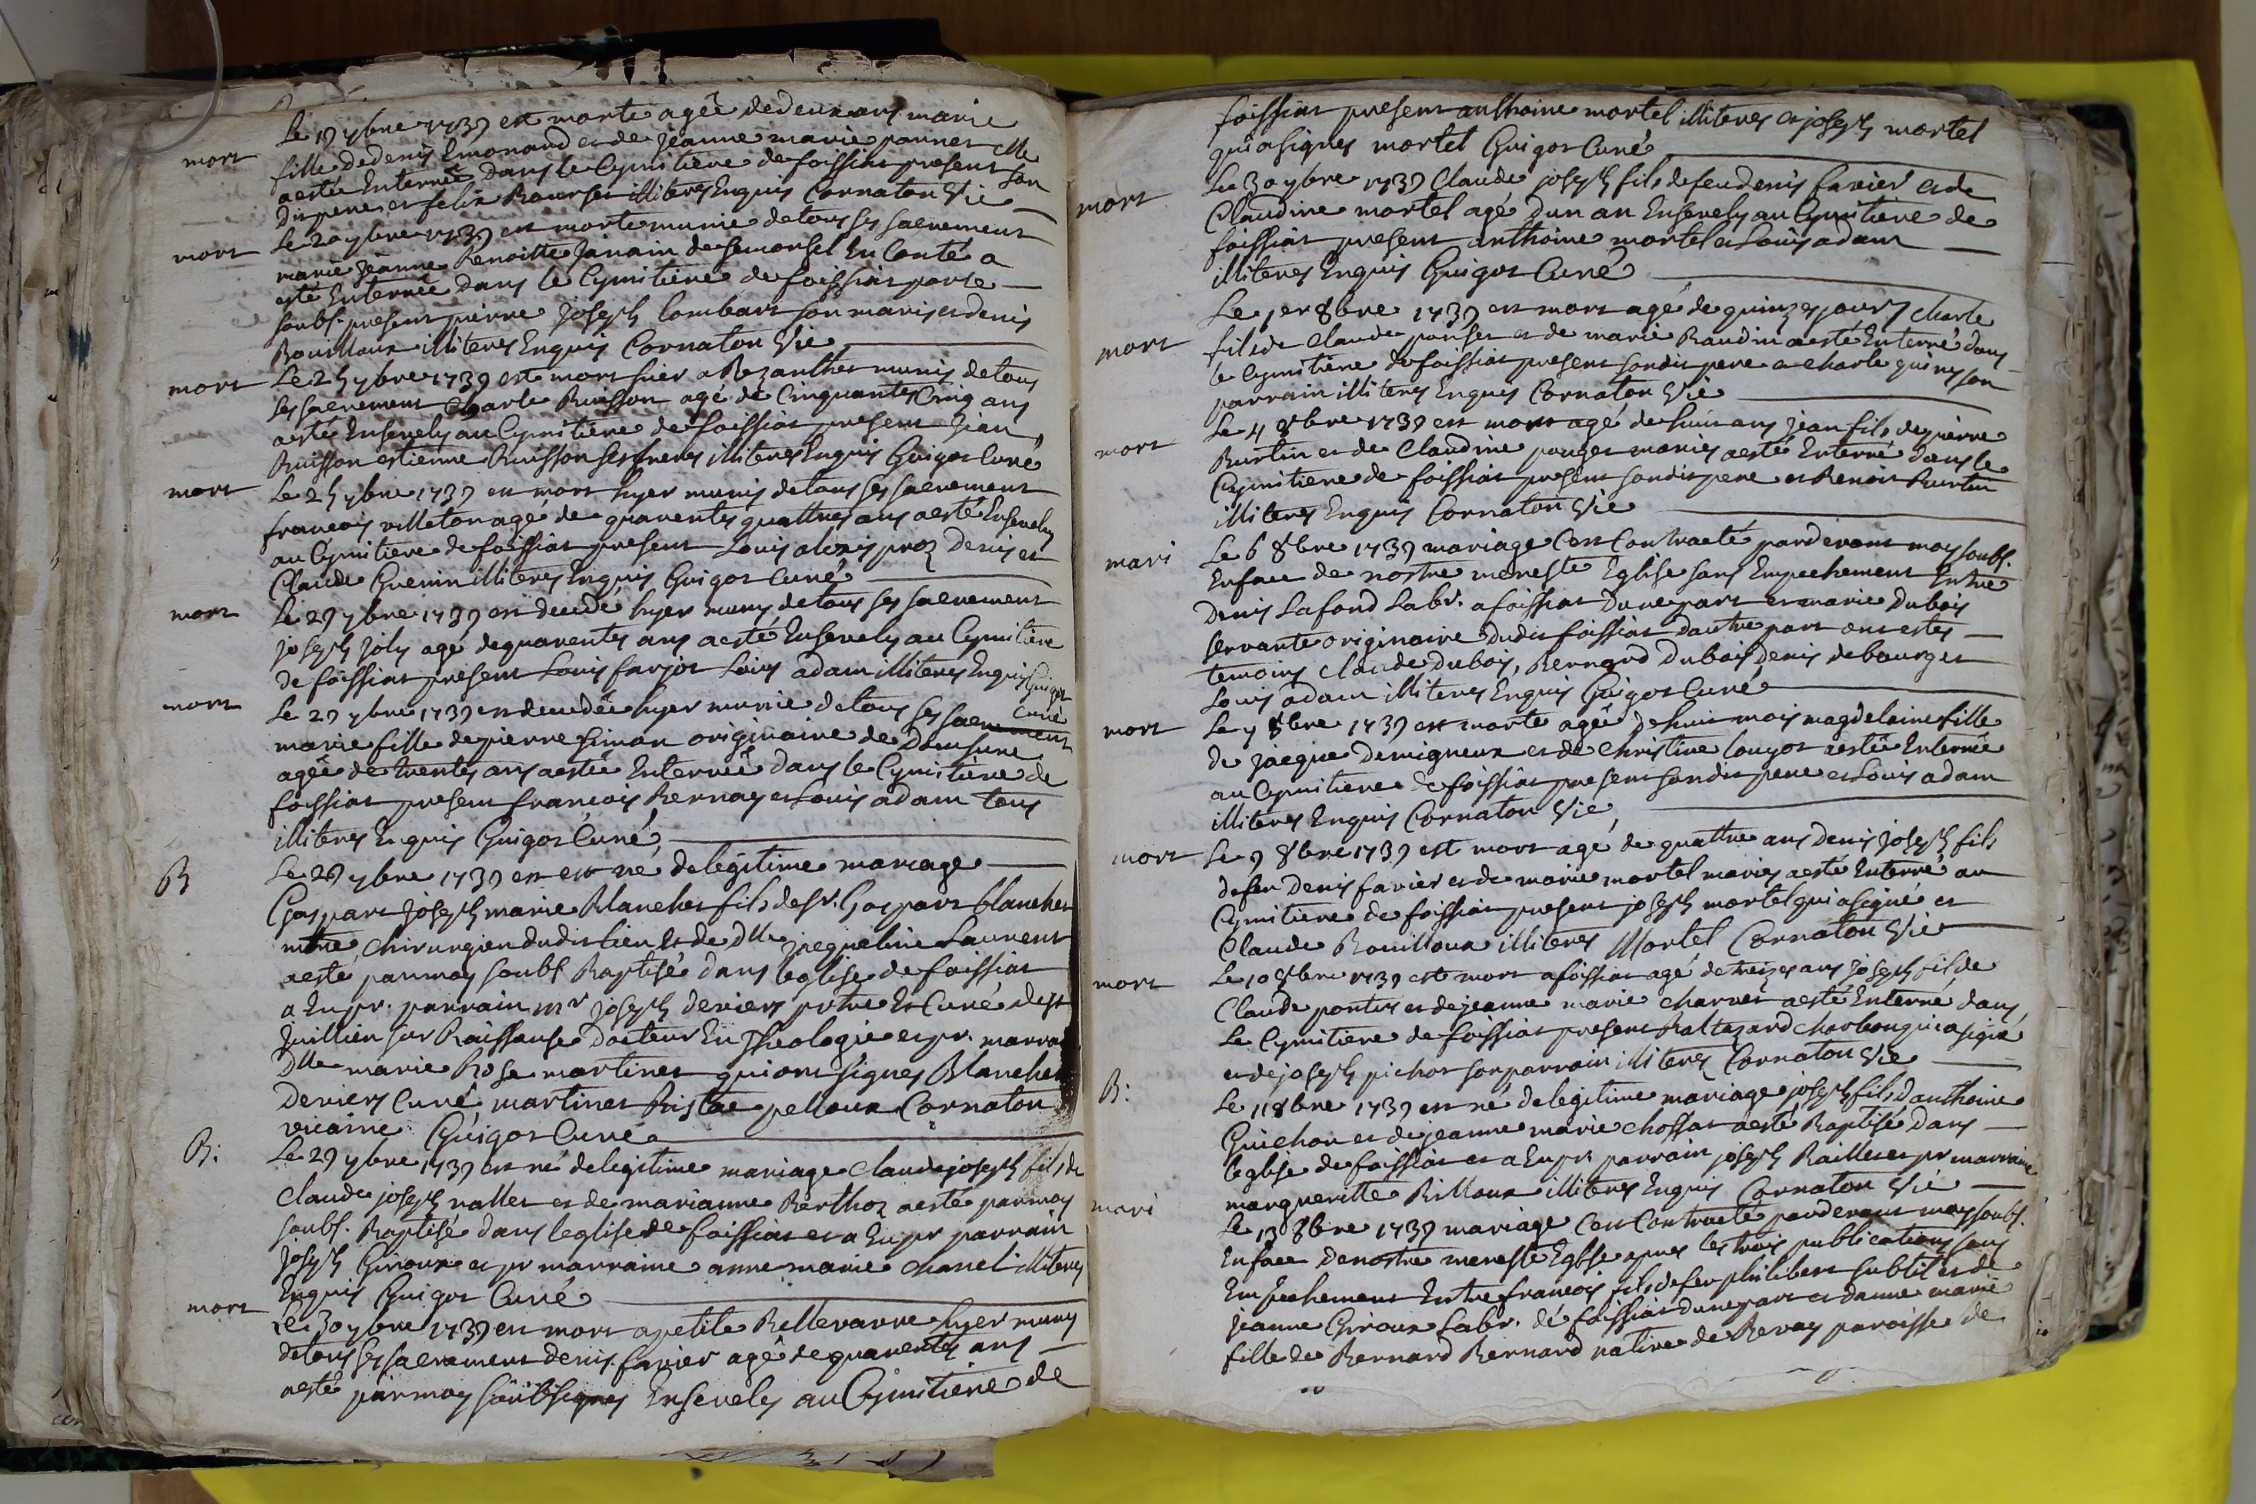 Le 19 7bre 1739 est morte agée de deux ans marie
mort
fille de denis Emonand et de jeanne marie ponnet elle
a esté Enterrée dans le Cymitiere de foissiat present son
dit pere et felix Bourset illiteres Enquis Cornaton Vic
mort
Le 20 7bre 1739 est morte munie de tous ses sacrement
marie jeanne Benoitte janain de
En Conté a
esté Enterrée dans le Cymitiere de foissiat par le
soubs. present pierre joseph lombart son maris et denis
Bouilloux illiteres Enquis Cornaton Vic
mort
Le 25 7bre 1739 est mort hier a Bezanthet munis de tous
ses sacrement Charle Buisson agé de Cinquantes Cinq ans
a esté Ensevely au Cymitiere de foissiat present jean
Buisson estienne Buisson ses freres illiteres Enquis Guigot Curé
mort
Le 25 7bre 1739 est mort hyer munis de tous ses sacrement
francois villeton agé de quarentes quattres ans a esté Ensevely
au Cymitiere de foissiat present Louis alexis proz Denis et
Claude Guenin illiteres Enquis Guigot Curé
mort
Le 29 7bre 1739 est decedé hyer muny de tous ses sacrement
joseph joly agé de quarentes ans a esté Ensevely au Cymitiere
de foissiat present Louis farjot Louis adam illiteres Enquis Guigot
Curé
mort
Le 29 7bre 1739 est decedée hyer munie de tous ses sacrement
marie fille de pierre simon originaire de Domsure
agée de trentes ans a estée Enterrée dans le Cymitiere de
foissiat present francois Bernay et Louis adam tous
illiteres Enquis Guigot Curé
B
Le 28 7bre 1739 est né de legitime mariage
Gaspart joseph marie Blanchet fils de sr. Gaspart blanchet
mtre chirurgien dudit lieu Et de dlle jacqueline Laurent
a esté par moy soubs Baptisé dans leglise de foissiat
a Eu pr. parrain mr joseph deriers prtre Et Curé de st
jullien sur Raissouse Docteur En Theologie et pr. marra
Dlle marie Rose martinet qui ont signes Blanchet
Deriers Curé martinet Pelloux Cornaton
vicaire Guigot Curé
B:
Le 29 7bre 1739 est né de legitime mariage Claude joseph fils de
Claude joseph vallet et de marianne Berthoz a esté par moy
soubs. Baptisé dans leglise de foissiat et a Eu pr parrain
joseph Giroux et pr marraine anne marie chanel illiteres
Enquis Guigot Curé
mort
Le 30 7bre 1739 est mort a petite Bellevavre hyer muny
de tous ses sacrement denis favier agé de quarentes ans
a esté par moy soubsignes Ensevely au Cymitiere de
foissiat present anthoine mortel illiteres et joseph mortel
qui a signes mortel Guigot Curé
mort
Le 30 7bre 1739 Claude joseph fils de feu denis favier et de
Claudine mortel agé dun an Ensevely au Cymitiere de
foissiat present anthoine mortel et Louis adam
illiteres Enquis Guigot Curé
mort
Le 1er 8bre 1739 est mort agé de quinze jours Charle
fils de claude ponset et de marie Baudin a esté Enterré dans
le Cymitiere de foissiat present sondit pere et charle son
parrain illiteres Enquis Cornaton Vic
mort
Le 4 8bre 1739 est mort agé de huit ans jean fils de pierre
Burtin et de Claudine ponget mariés a esté Enterré dans le
Cymitiere de foissiat present sondit pere et Benoit Burtin
illiteres Enquis Cornaton Vic
mari
Le 6 8bre 1739 mariage Cest Contracté pardevant moy soubs.
Enface de nostre mereste Eglise sans Empechement Entre
Denis Lafond Labr. a foissiat Dune part et marie Dubois
servante originaire Dudit foissiat dautre part ont estes
temoins claude Dubois, Bernard Dubois, denis debourget
Louis adam illiteres Enquis Guigot Curé
mort
Le 7 8bre 1739 est morte agée de huit mois magdelaine fille
de jacque Demigneux et de Christine Couyot a estée Enterrée
au Cymitiere de foissiat present sondit pere et Louis adam
illiteres Enquis Cornaton Vic
mort
Le 9 8bre 1739 est mort agé de quattre ans Denis joseph fils
defeu Denis favier et de marie mortel mariés a esté Enterré au
Cymitiere de foissiat present joseph mortel qui a signé et
Claude Bouilloux illiteres Mortel Cornaton Vic
mort
Le 10 8bre 1739 est mort a foissiat agé de treizes ans joseph fils de
Claude pontus et de jeanne marie charvet a esté Enterré dans
Le Cymitiere de foissiat present Baltazard Charbon qui a signé
et de joseph pichot son parrain illiteres Cornaton Vic
B:
Le 11 8bre 1739 est né de legitime mariage joseph fils danthoine
Guichon et de jeanne marie chossat a esté Baptisé Dans
leglise de foissiat et a Eu pr parrain joseph Baillet et pr marraine
margueritte Billoux illiteres Enquis Cornaton Vic
mari
Le 13 8bre 1739 mariage Cest Contracté pardevant moy soubs.
Enface de nostre mereste Eglise apres les trois publications sans
Empechement Entre francois fils de feu philibert subtil et de
jeanne Giroux Labr. de foissiat dune part et danne marie
fille de Bernard Bernard native de Beray paroisse de